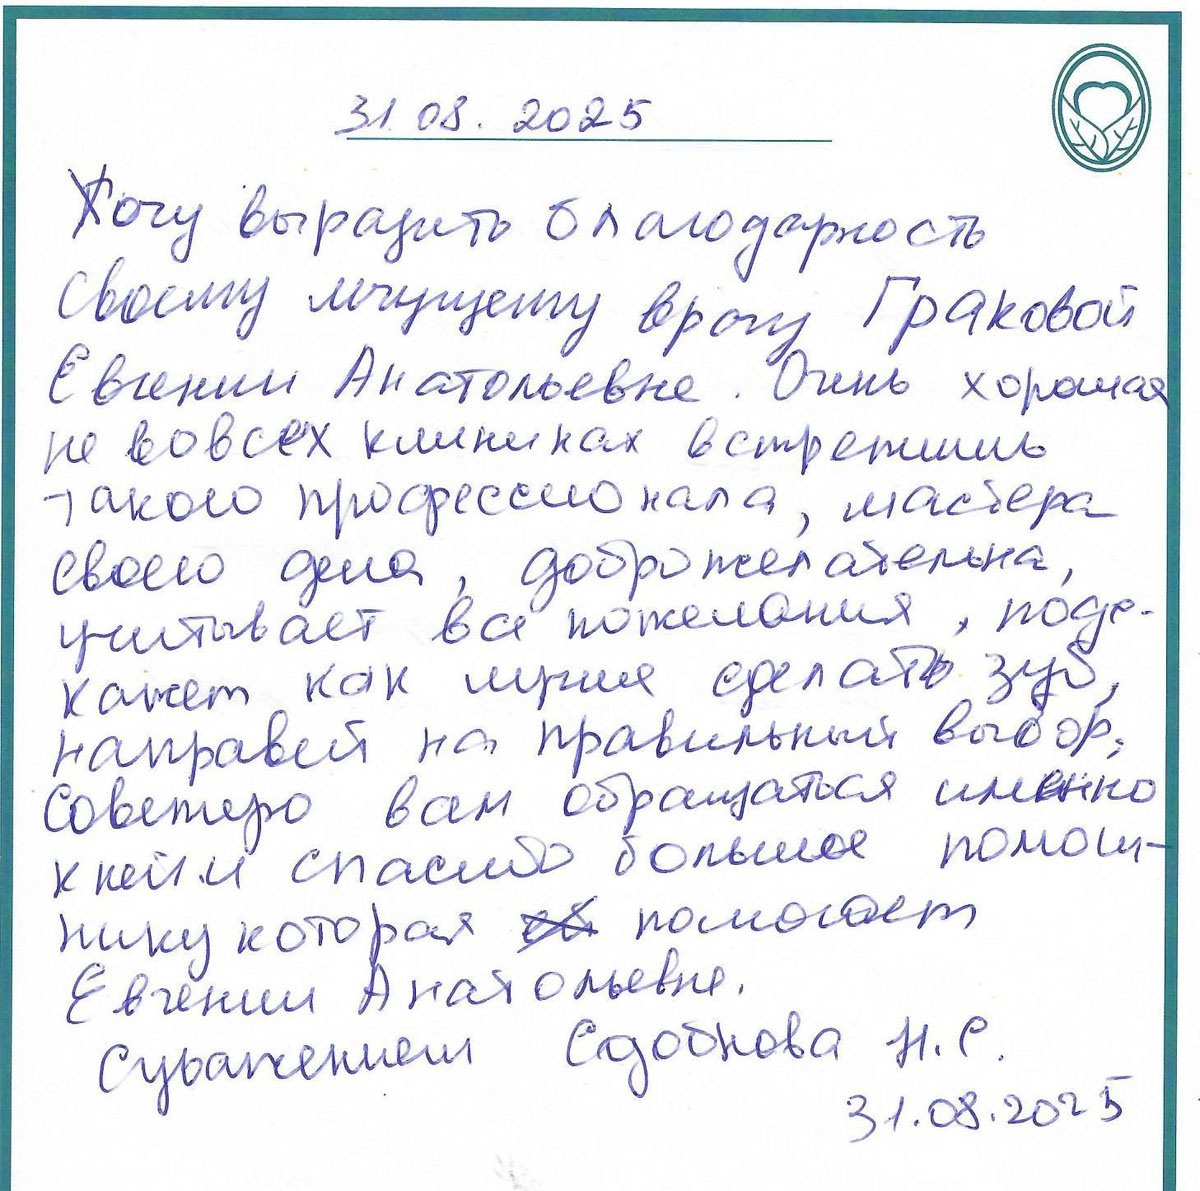 31.08.2025
Хочу выразить благодарность
своему лечущему врачу Граковой
Евгении Анатольевне. Очень хорошая
не вовсех клиниках встретишь
такого профессионала, мастера
своего дела, доброжелательна,
учитывает все пожелания, подс-
кажет как лучше сделать зуб,
направит на правильный выбор,
Советую вам обращаться именно
к ней и спасибо большое помощ-
нику которая помогает
Евгении Анатольевне.
Суважением Сдобнова Н.С.
31.08.2025